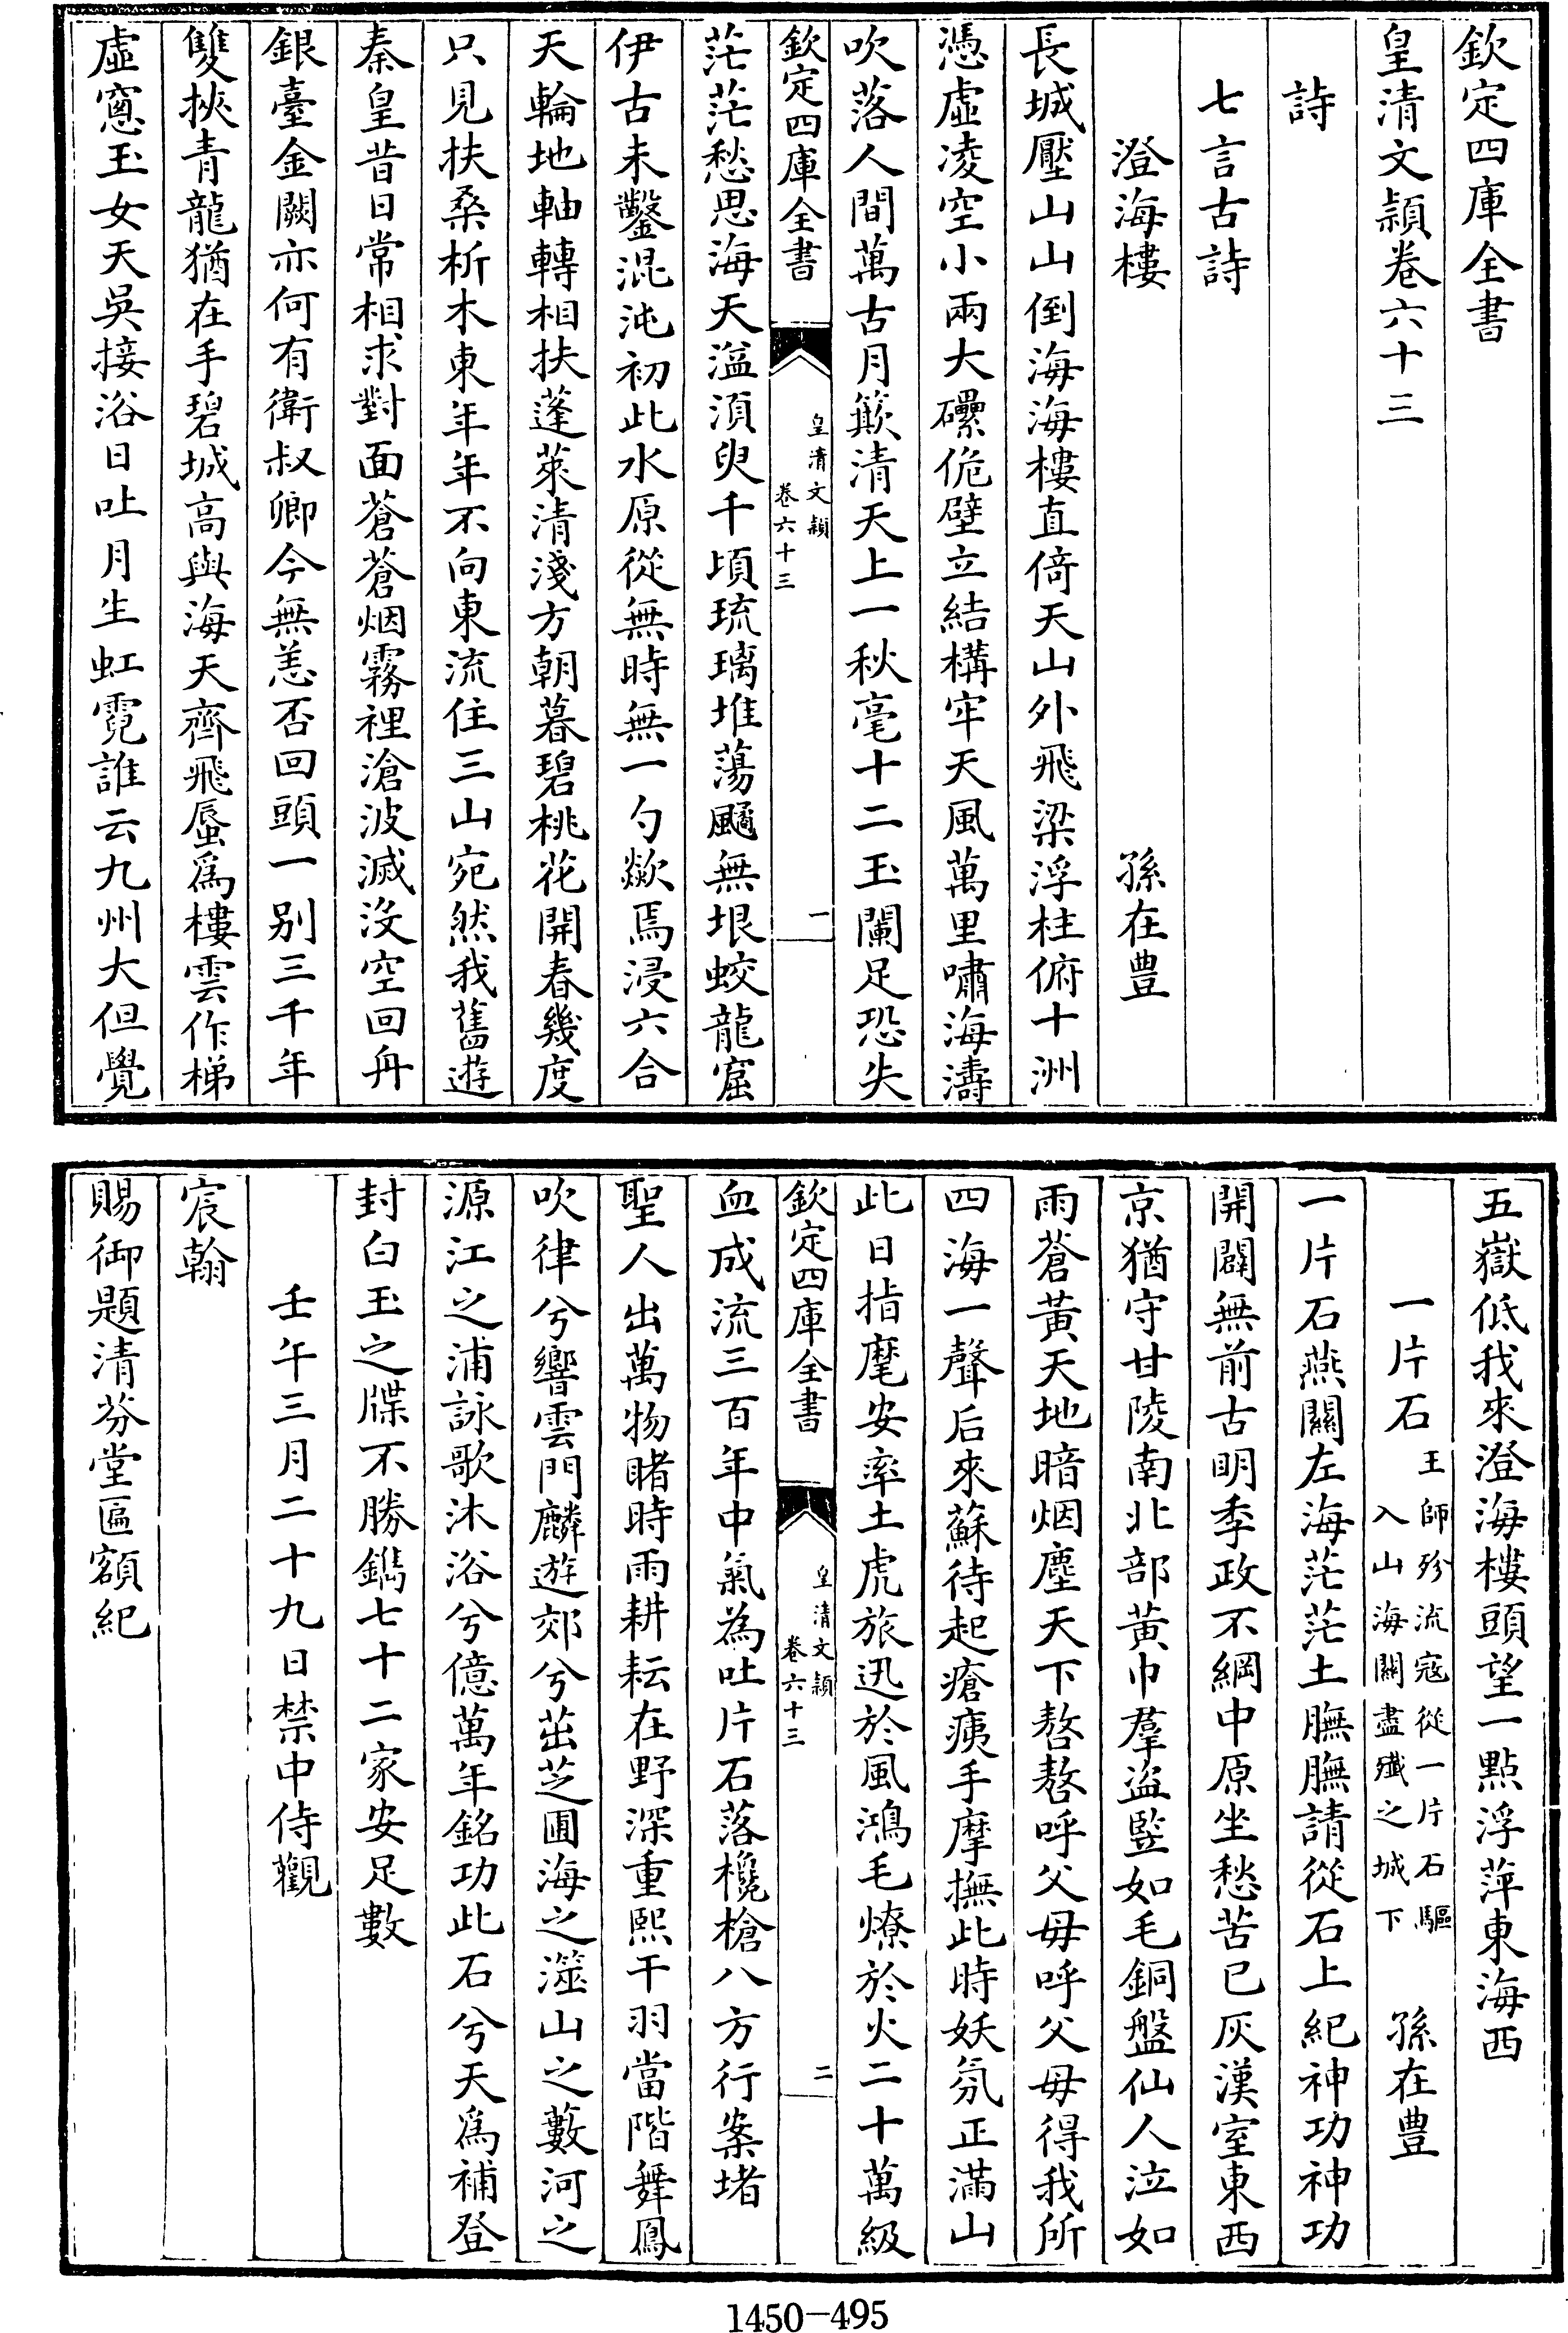 欽定四庫全書
皇清文穎卷六十三
詩
七言古詩
澄海樓 孫在豊
長城壓山山倒海海樓直倚天山外飛梁浮柱俯十洲
憑虛凌空小兩大礧佹壁立結構牢天風萬里嘯海濤
吹落人間萬古月簸清天上一秋毫十二玉闌足恐失
欽定四庫全書 皇清文穎 卷六十三 一
茫茫愁思海天溢湏臾千頃琉璃堆蕩颺無垠蛟龍窟
伊古未鑿混沌初此水原從無時無一勺歘焉浸六合
天輪地軸轉相扶蓬萊清淺方朝暮碧桃花開春幾度
只見扶桑析木東年年不向東流住三山宛然我舊遊
秦皇昔日常相求對面蒼蒼烟霧裡滄波滅没空回舟
銀臺金闕亦何有衛叔卿今無恙否回頭一別三千年
雙挾青龍猶在手碧城高與海天齊飛蜃爲樓雲作梯
虛窻玉女天吳接浴日吐月生虹霓誰云九州大但覺
五嶽低我來澄海樓頭望一點浮萍東海西
一片石 王師殄流寇從一片石驅入山海關盡殲之城下 孫在豊
一片石燕關左海茫茫土膴膴請從石上紀神功神功
開闢無前古明季政不綱中原坐愁苦已灰漢室東西
京猶守甘陵南北部黃巾羣盜竪如毛銅盤仙人泣如
雨蒼黃天地暗烟塵天下嗸嗸呼父母呼父母得我所
四海一聲后來蘇待起瘡痍手摩撫此時妖氛正滿山
此日指麾安率土虎旅迅於風鴻毛燎於火二十萬級
欽定四庫全書 皇清文穎 卷六十三 二
血成流三百年中氣為吐片石落欃槍八方行案堵
聖人出萬物睹時雨耕耘在野深重熙干羽當階舞鳳
吹律兮響雲門麟遊郊兮茁芝圃海之澨山之藪河之
源江之浦詠歌沐浴兮億萬年銘功此石兮天爲補登
封白玉之牒不勝鐫七十二家安足數
壬午三月二十九日禁中侍觀
宸翰
賜御題清芬堂匾額紀
1450-495